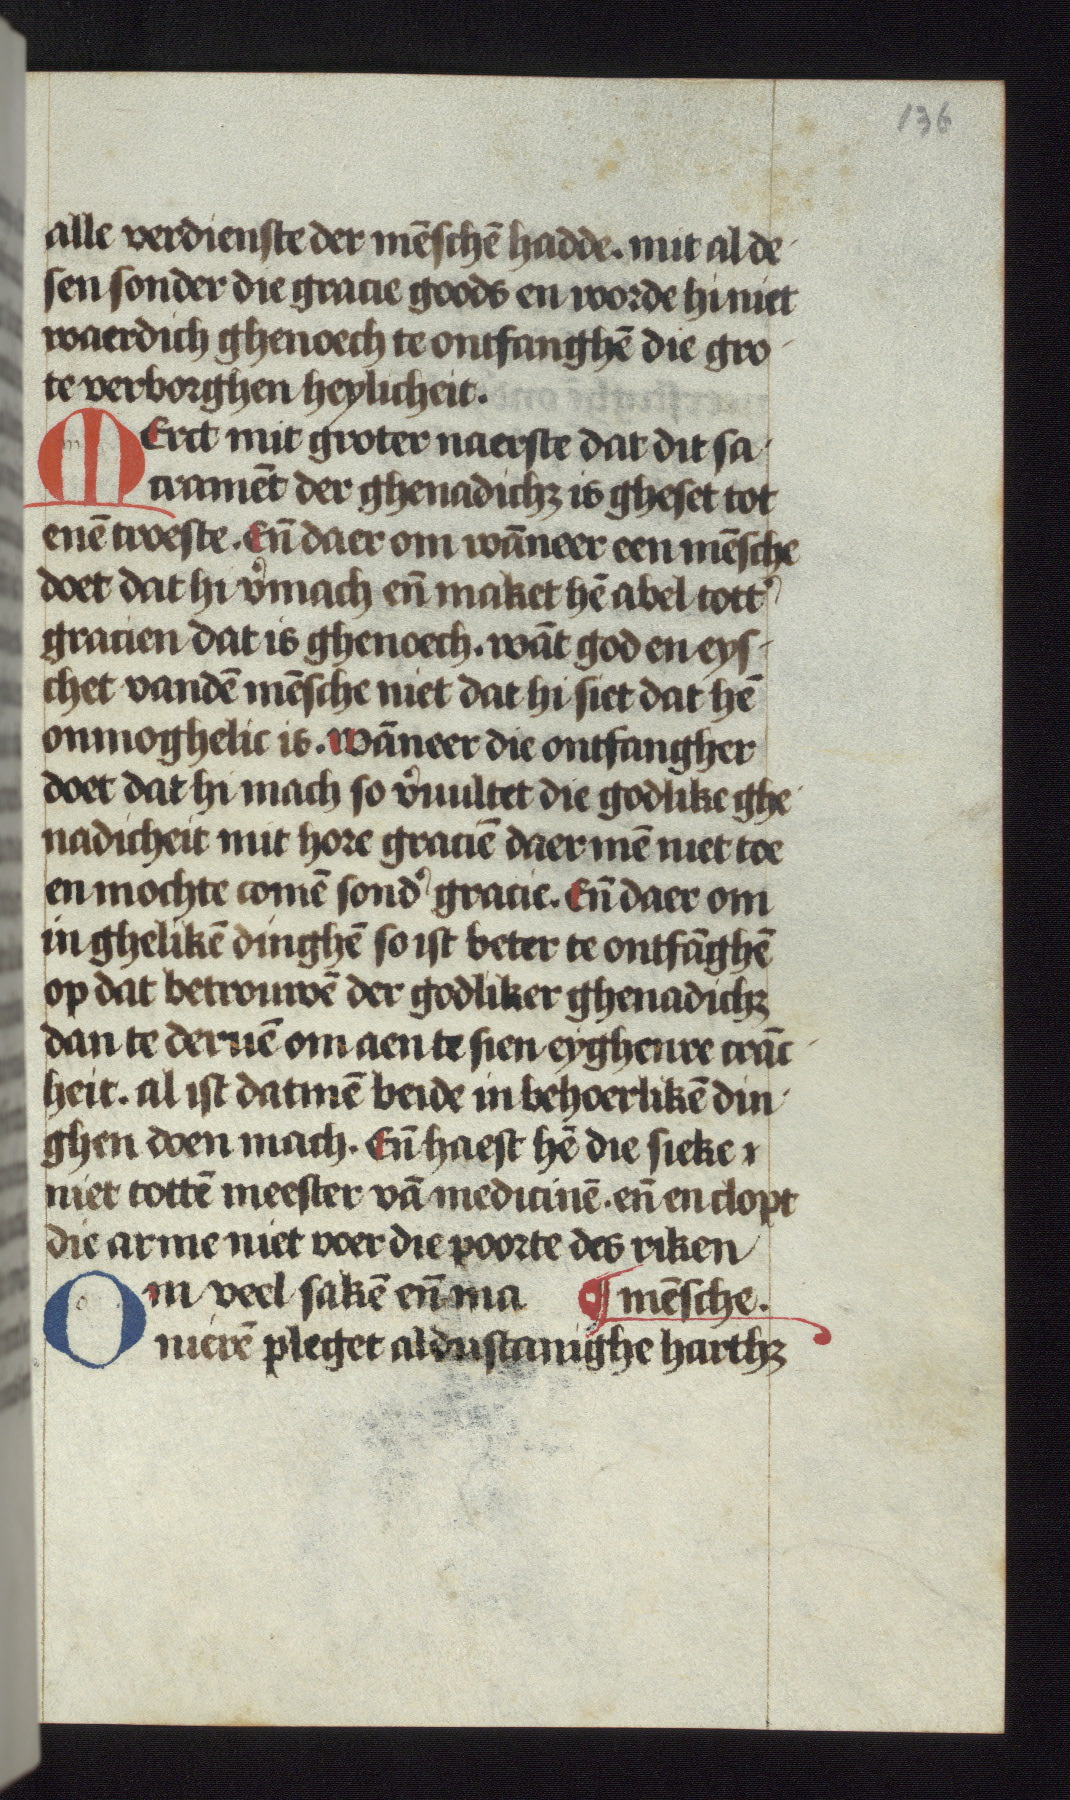 136
alle verdienste der mēschē hadde. mit al de-
sen sonder die gracie goods en worde hi niet
waerdich ghenoech te ontfanghē die gro-
te verborghen heylicheit.
MErct mit groter naerste dat dit sa-
cramēt der ghenadichꝫ is gheset tot
enē troeste. Eñ daer om wāneer een mēsche
doet dat hi v̾mach eñ maket hē abel tott̾
gracien dat is ghenoech. wāt god en eys-
chet vandē mēsche niet dat hi siet dat hē
onmoghelic is. Wāneer die ontfangher
doet dat hi mach so v̾uultet die godlike ghe-
nadicheit mit hore graciē daer mē niet toe
en mochte comē sond̾ gracie. Eñ daer om
in ghelikē dinghē so ist beter te ontfāghē
op dat betrouwē der godliker ghenadichꝫ
dan te deruē om aen te sien eyghenre crāc-
heit. al ist datmē beide in behoerlikē din-
ghen doen mach. Eñ haest hē die sieke
niet tottē meester vā medicinē. eñ en clopt
die arme niet voer die poorte des riken
Om veel sakē eñ ma ¶ mēsche.
nierē pleget aldustanighe harthꝫ